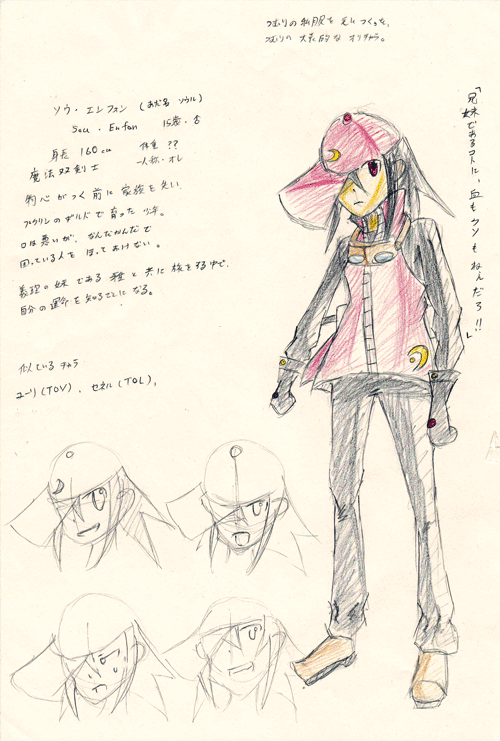 つむりの私服を元につくった、
つむりの大光的なオリキャラ。
ソウ・エンフォン (あだ名 ソウル)
Sou・Enfan 15歳・杏
身長 160cm 体重 ??
魔法双剣士 一人称・オレ
物心がつく前に家族を失い
フウリンのギルドで育った少年。
口は悪いが、なんだかんだで
困っている人をほっておけない。
義理の妹である 雅と共に旅をする中で、
自分の運命を知ることになる。
似ているキャラ
ユーリ(TOV)、セネル(TOL)、
「兄妹であるコトに、血もクソもねぇだろ!!」